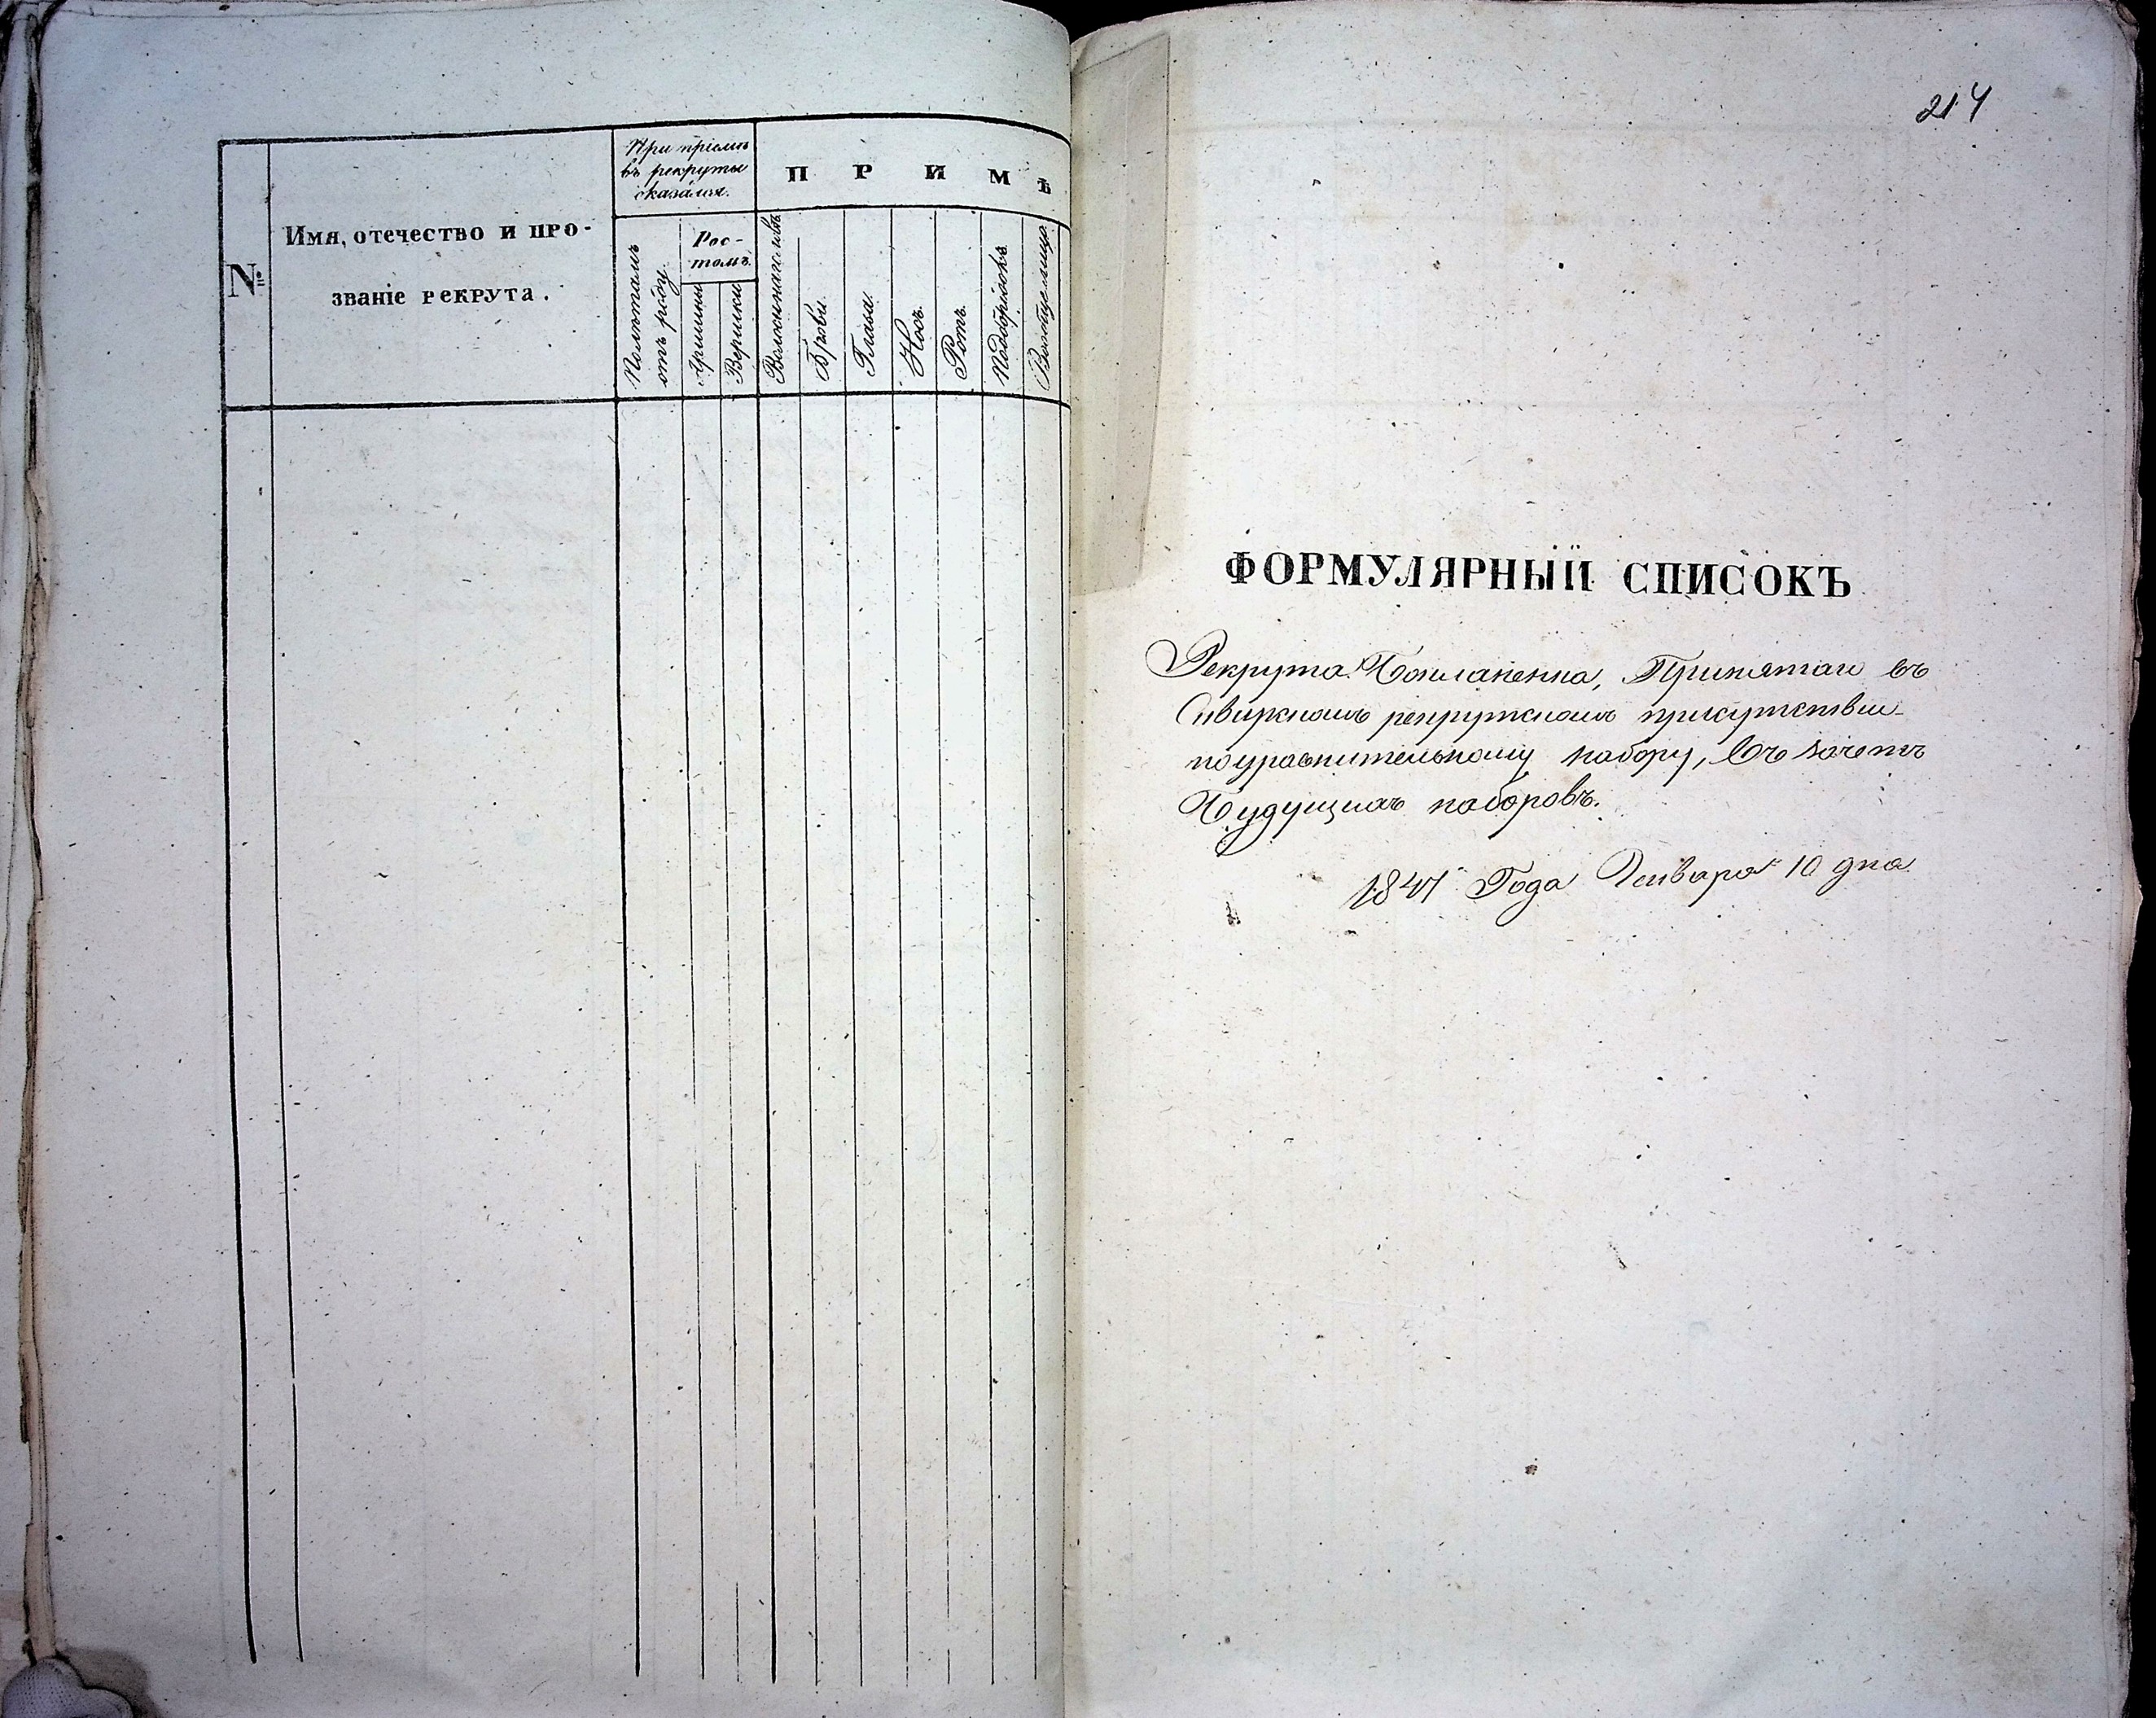 №
Имя, отечество и про-
званіе рекрута.
При пріемѣ
въ рекруты
сказался.
Полѣтамъ
отъ роду
Рос-
томъ.
Аршины
Вершки
П Р И М Ѣ
Брови.
Глаза
Носъ.
Ротъ.
Подбородокъ
Вообще лицо.
214
ФОРМУЛЯРНЫЙ СПИСОКЪ
Рекрута Принятаго въ
рекрутскомъ присутствіи
поуравнительному набору, Въ зачетъ
Будущихъ наборовъ.
1847 Года Генваря 10 дня